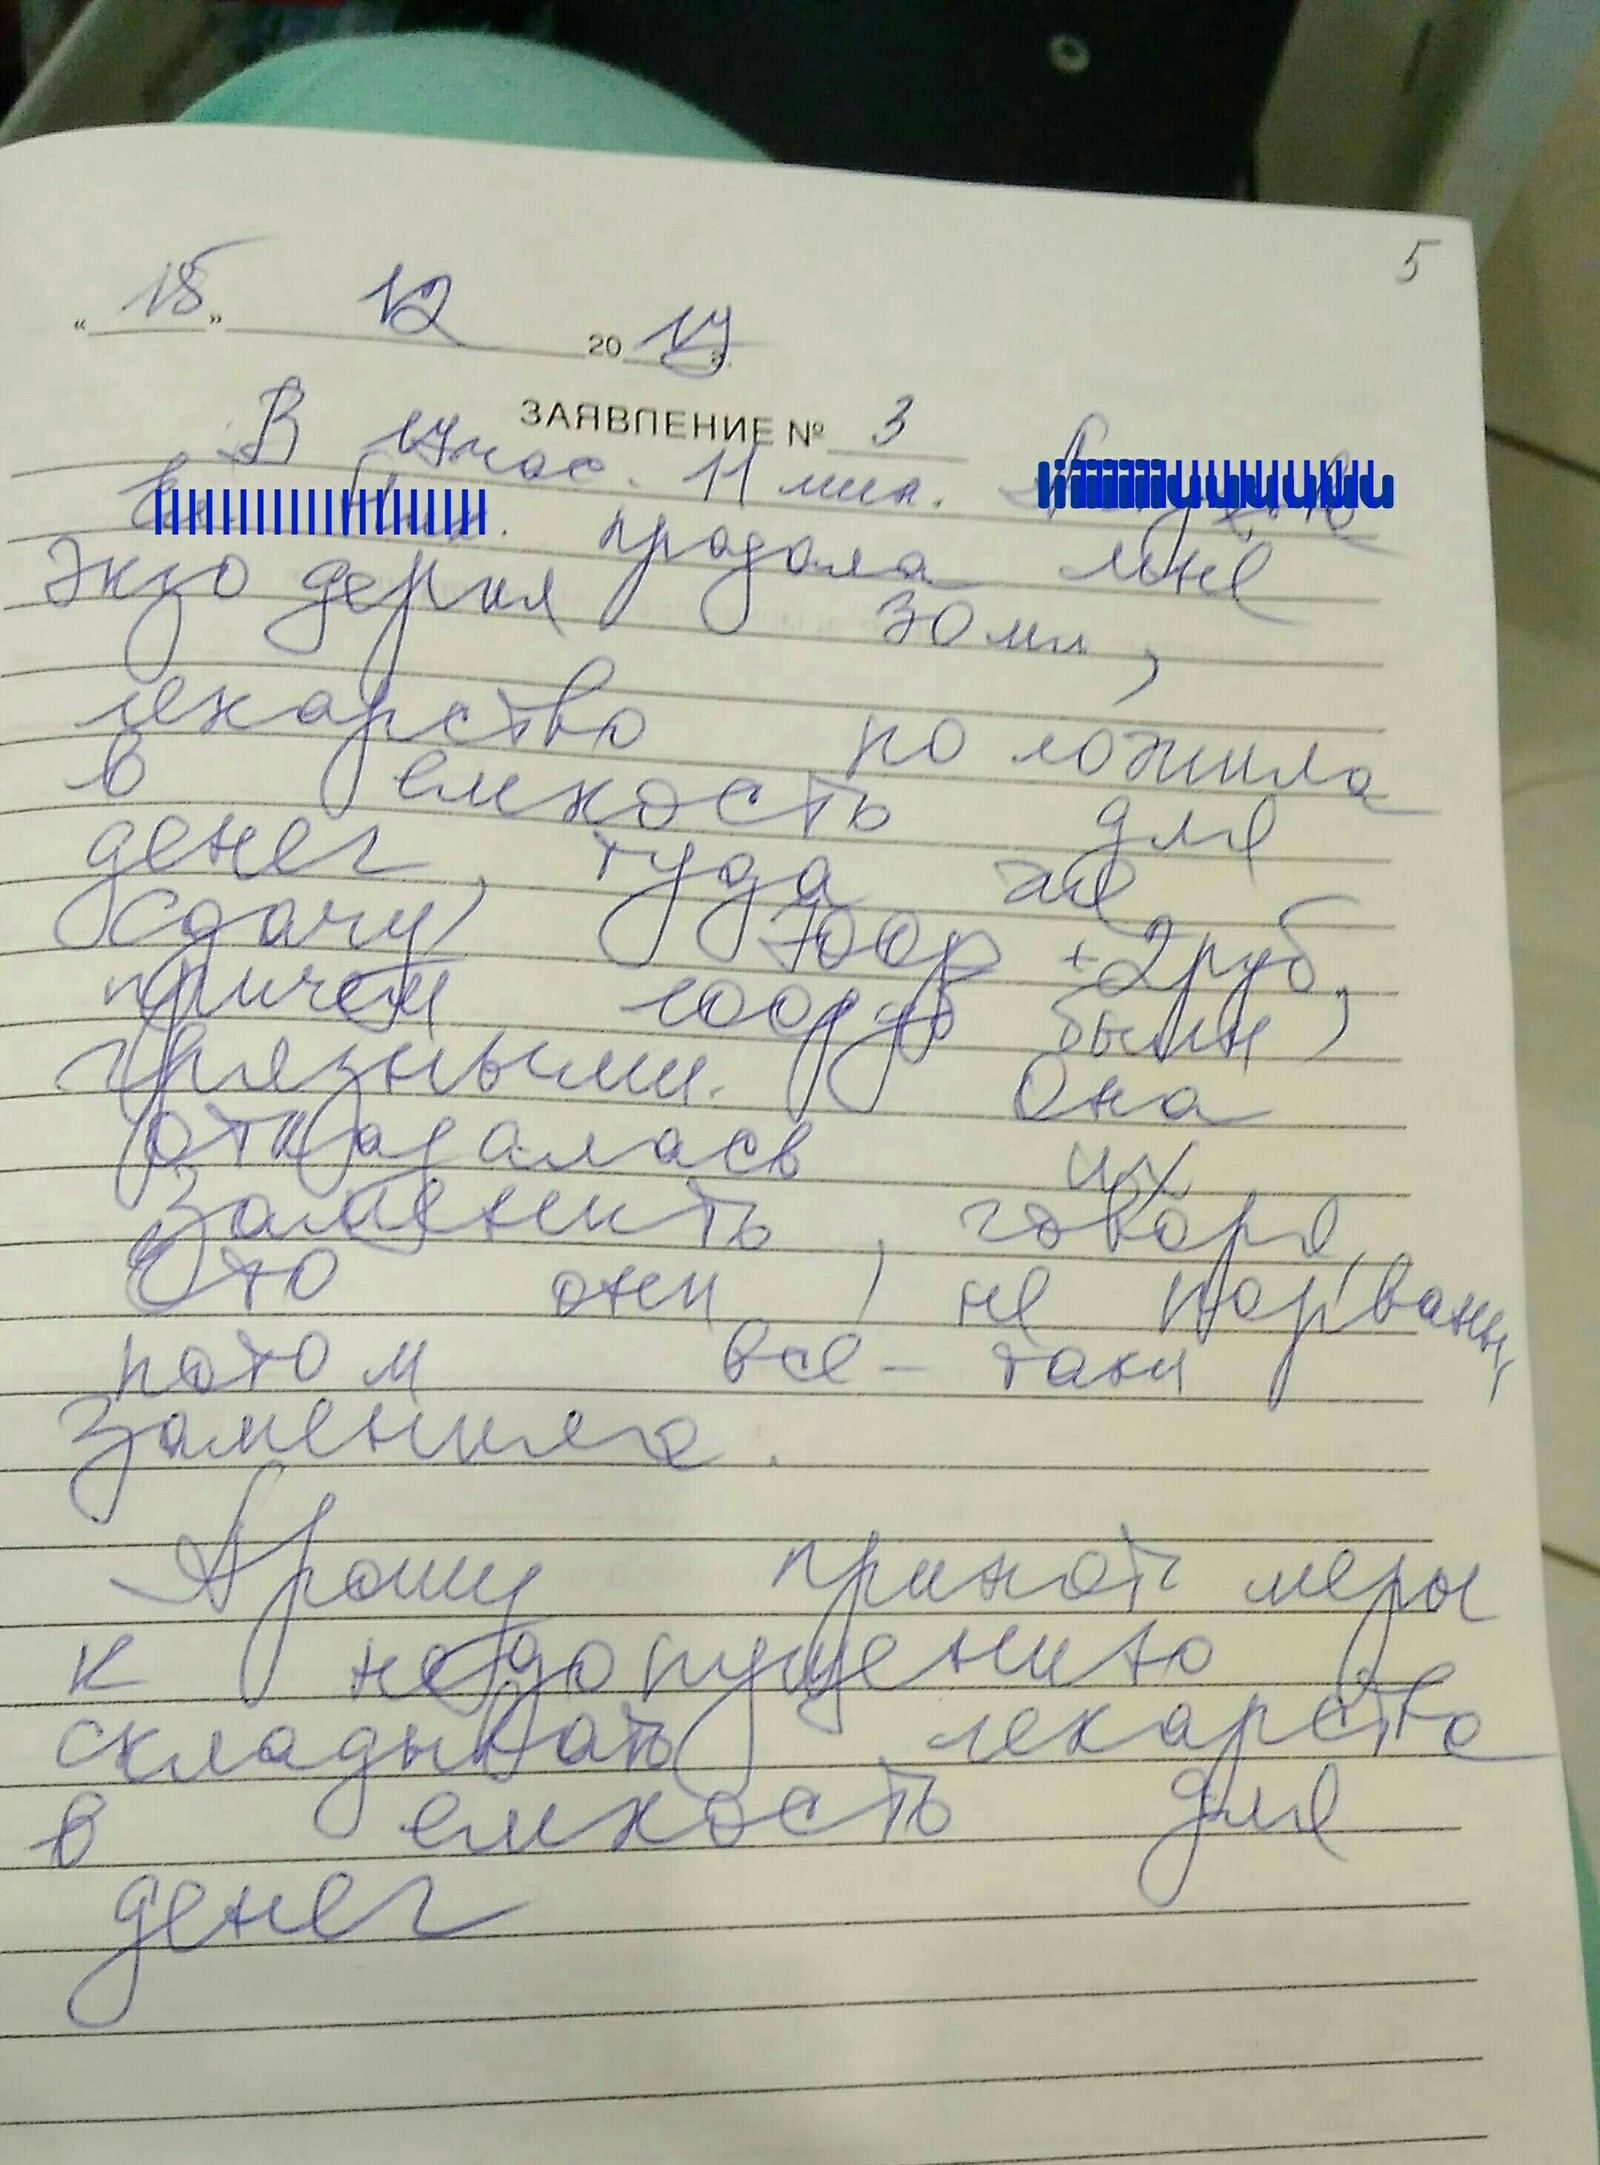 5
„15" 12 2017 г.
ЗАЯВЛЕНИЕ № 3
В 17 час. 11 мин.
продала мне
Экзодерил 30 мл,
лекарство положила
в емкость для
денег, туда же
сдачу, 700р + 2 руб,
причем 100 руб были
грязными. Она
отказалась их
заменить, говоря,
что они, не порваны,
потом все-таки
заменила.
Прошу принять меры
к недопущению
складывать лекарства
в емкость для
денег